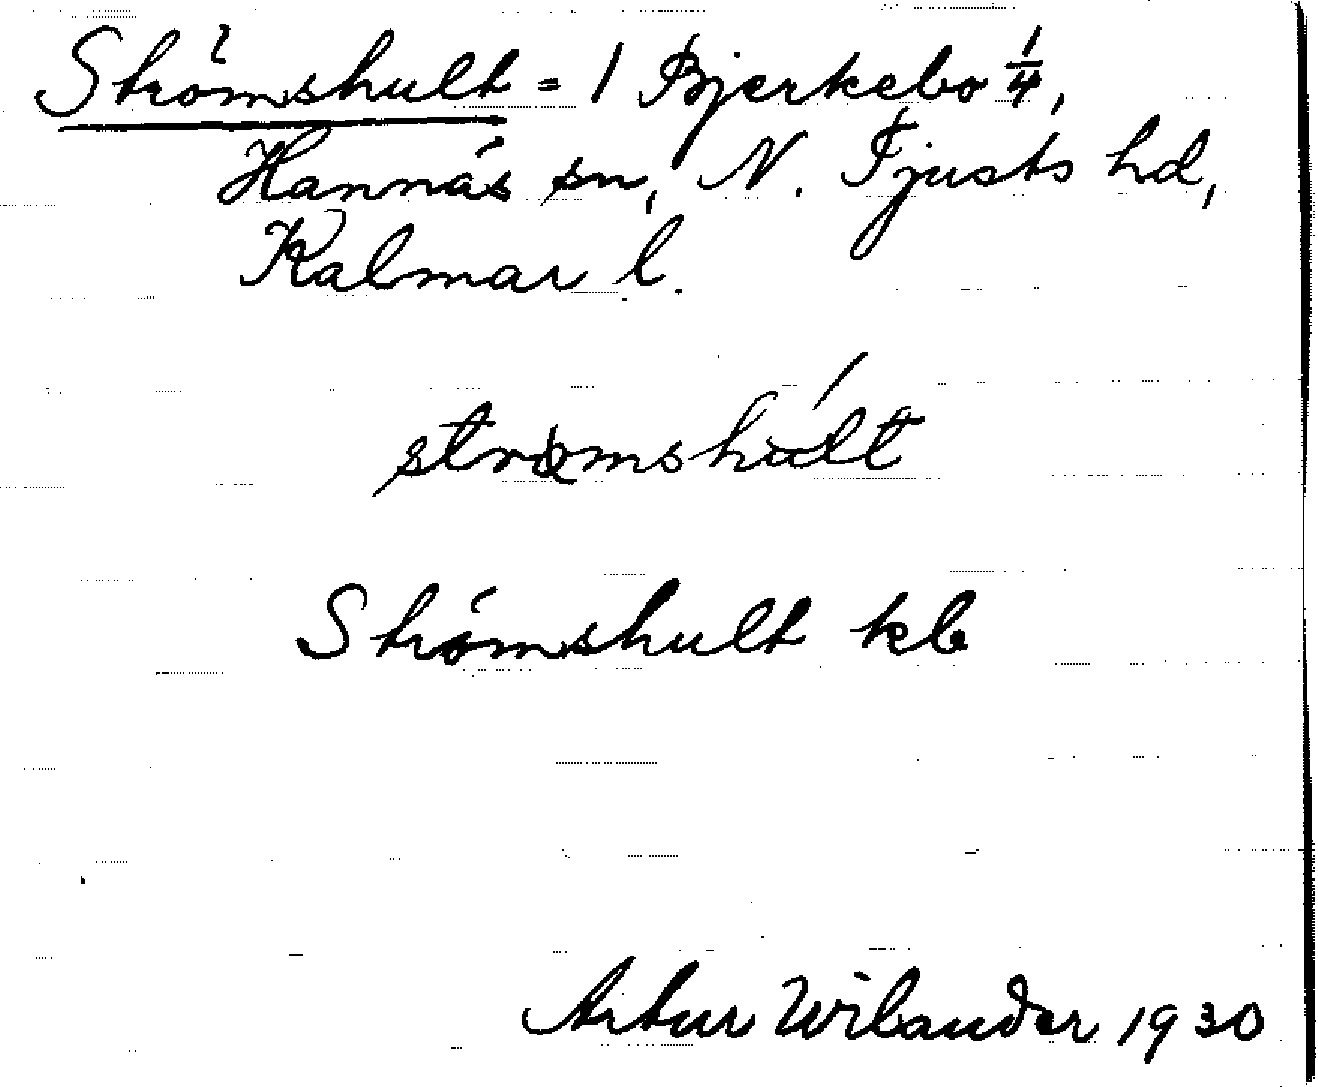 Strömshult = 1 Bjerkebo 1/4,
Hannäs sn, N. Tjusts hd,
Kalmar l.
Strömshult kb
Artur Wilander 1930